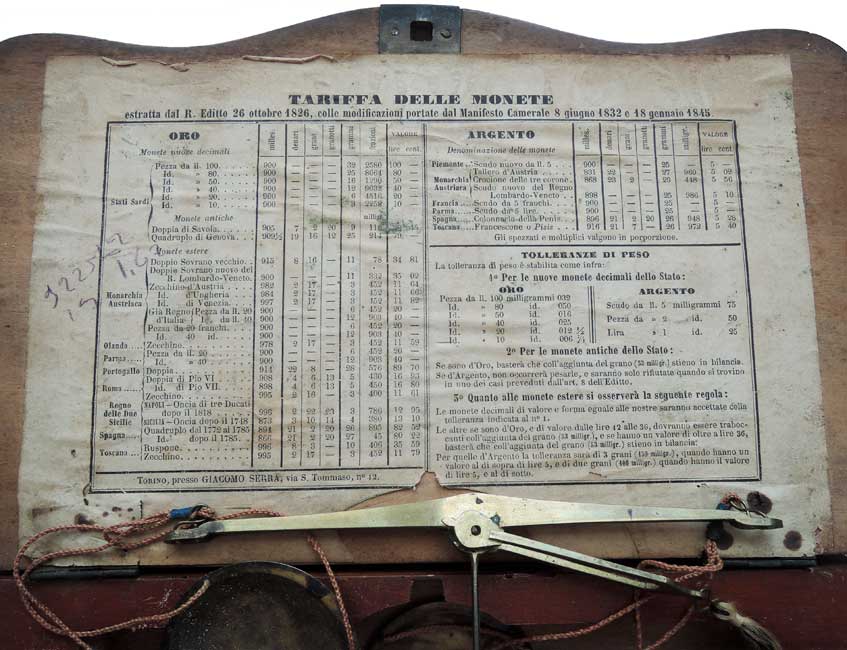 TARIFFA DELLE MONETE
estratta dal R. Editto 26 ottobre 1826, colle modificazioni portate dal Manifesto Camerale 8 giugno 1832 e 18 gennaio 1845
ORO
milles. denari grani granotti grammi VALORE
lire cent.
Monete nuove decimali
Stati Sardi
Pezza da ll. 100 900 — — — 32 2580 100 —
Id. » 80 900 — — — 25 8064 80 —
Id. » 50 900 — — — 16 1290 50 —
Id. » 40 900 — — — 12 9032 40 —
Id. » 20 900 — — — 6 4516 20 —
Id. » 10 900 — — — 3 2258 10 —
Monete antiche
milligr.
Doppia di Savoia 905 7 2 20 9
Quadruplo di Genova 909½ 19 16 12 25
Monete estere
Monarchia Austriaca
Doppio Sovrano vecchio 915 8 16 — 11 78 34 81
Doppio Sovrano nuovo del
R. Lombardo-Veneto 900 — — — 11 332 35 02
Zecchino d'Austria 982 2 17 — 3 452 11 64
Id. d'Ungheria 984 2 17 — 3 452 11 66
Id. di Venezia 997 2 17 — 3 452 11 82
Già Regno Pezza da ll. 20 900 — — — 6 452 20 —
d'Italia Id. da ll. 40 900 — — — 12 903 40 —
Francia
Pezza da 20 franchi 900 — — — 6 452 20 —
Id. 40 id. 900 — — — 12 903 40 —
Olanda Zecchino 978 2 17 — 3 452 11 59
Parma Pezza da ll. 20 900 — — — 6 452 20 —
Id. » 40 900 — — — 12 903 40 —
Portogallo Doppia 914 22 8 — 28 576 89 70
Roma
Doppia di Pio VI 908 4 6 13 5 430 16 83
Id. di Pio VII 898 4 6 13 5 450 16 80
Zecchino 995 2 16 — 3 400 11 61
Regno delle Due Sicilie
NAPOLI - Oncia di tre Ducati
dopo il 1818 996 2 22 23 3 786 12 95
SICILIA - Oncia dopo il 1748 873 3 10 14 4 280 13 10
Spagna
Quadruplo dal 1772 al 1785 894 21 2 20 26 895 82 52
Id. dopo il 1785 866 21 2 20 27 45 80 22
Toscana
Ruspone 996 8 3 — 10 406 35 59
Zecchino 995 2 17 — 3 452 11 79
ARGENTO
milles. denari grani granotti grammi milligr. VALORE
lire cent.
Denominazione delle monete
Piemonte Scudo nuovo da ll. 5 900 — — — 25 — 5 —
Monarchia Austriaca
Tallero d'Austria 831 22 — — 27 960 5 02
Crocione delle tre corone 868 23 2 — 29 448 5 56
Scudo nuovo del Regno
Lombardo-Veneto 898 — — — 25 986 5 10
Francia Scudo da 5 franchi 900 — — — 25 — 5 —
Parma Scudo da 5 lire 900 — — — 25 — 5 —
Spagna Colonnaria delle Perle 896 21 2 20 26 948 5 28
Toscana Francescone o Pisis 916 21 7 — 26 972 5 40
Gli spezzati e moltiplici valgono in porporzione.
TOLLERANZE DI PESO
La tolleranza di peso è stabilita come infra:
1° Per le nuove monete decimali dello Stato:
ORO
Pezza da ll. 100 milligrammi 032
Id. » 80 id. 050
Id. » 50 id. 016
Id. » 40 id. 025
Id. » 20 id. 012 ½
Id. » 10 id. 006 ¼
ARGENTO
Scudo da ll. 5 milligrammi 75
Pezza da » 2 id. 50
Lira » 1 id. 25
2° Per le monete antiche dello Stato:
Se sono d'Oro, basterà che coll'aggiunta del grano (53 milligr.) stieno in bilancia.
Se d'Argento, non occorrerà pesarle, e saranno solo rifiutate quando si trovino
in uno dei casi preveduti dall'art. 8 dell'Editto.
3° Quanto alle monete estere si osserverà la seguente regola:
Le monete decimali di valore e forma eguale alle nostre saranno accettate colla
tolleranza indicata al n° 1.
Le altre se sono d'Oro, e di valore dalle lire 12 alle 36, dovranno essere traboc-
canti coll'aggiunta del grano (53 milligr.), e se hanno un valore di oltre a lire 36,
basterà che coll'aggiunta del grano (53 milligr.) stieno in bilancia:
Per quelle d'Argento la tolleranza sarà di 3 grani (159 milligr.), quando hanno un
valore al di sopra di lire 5, e di due grani (106 milligr.) quando hanno il valore
di lire 5, e al di sotto.
TORINO, presso GIACOMO SERRA, via S. Tommaso, n° 12.